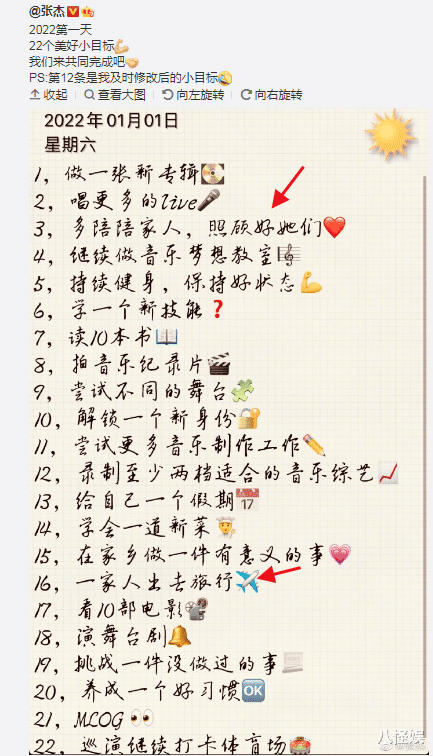 @张杰
2022第一天
22个美好小目标💪
我们来共同完成吧🤝
PS:第12条是我及时修改后的小目标😜
收起 查看大图 向左旋转 向右旋转
2022年01月01日
星期六
1，做一张新专辑💽
2，唱更多的live🎤
3，多陪陪家人，照顾好她们❤️
4，继续做音乐梦想教室🎼
5，持续健身，保持好状态💪
6，学一个新技能❓
7，读10本书📖
8，拍音乐纪录片🎬
9，尝试不同的舞台🧩
10，解锁一个新身份🔐
11，尝试更多音乐制作工作✏️
12，录制至少两档适合的音乐综艺📈
13，给自己一个假期📅
14，学会一道新菜👨‍🍳
15，在家乡做一件有意义的事💗
16，一家人出去旅行✈️
17，看10部电影📽️
18，演舞台剧🔔
19，挑战一件没做过的事
20，养成一个好习惯🆗
21，MLOG 👀
22，巡演继续打卡体育场🏟️
八怪娱